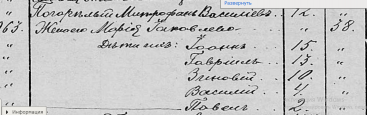 Развернуть
" Погорѣлый Митрофанъ Васильевъ. 12. "
363. Женаего Марія Яковлева 38.
" Дѣти ихъ: Іоаннъ 15. "
" Гавріилъ 13. "
" Зиновій 10. "
" Василій 4. "
" Павелъ 2. "
Информация